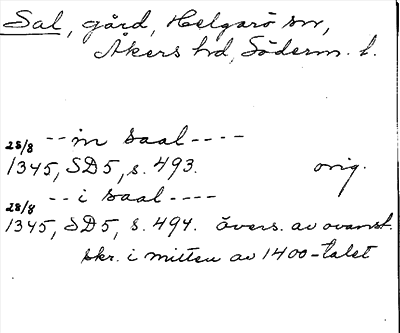 Sal, gård, Helgarö sn,
Åkers hd, Söderm. l.
28/8 -- in saal ----
1345, SD5, s. 493. orig.
28/8 -- i saal ----
1345, SD5, s. 494. övers. av ovanst.
skr. i mitten av 1400-talet